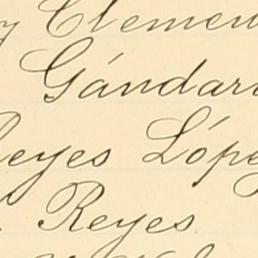 y Clemen
Gándar
Reyes Lópe
Reyes